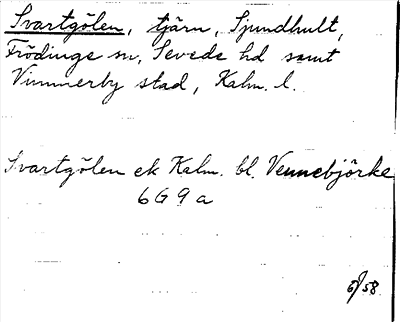 Svartgölen, tjärn, Sjundhult,
Frödinge sn, Sevede hd samt
Vimmerby stad, Kalm. l.
Svartgölen ek Kalm. bl. Vennebjörke
6G9a
6/58